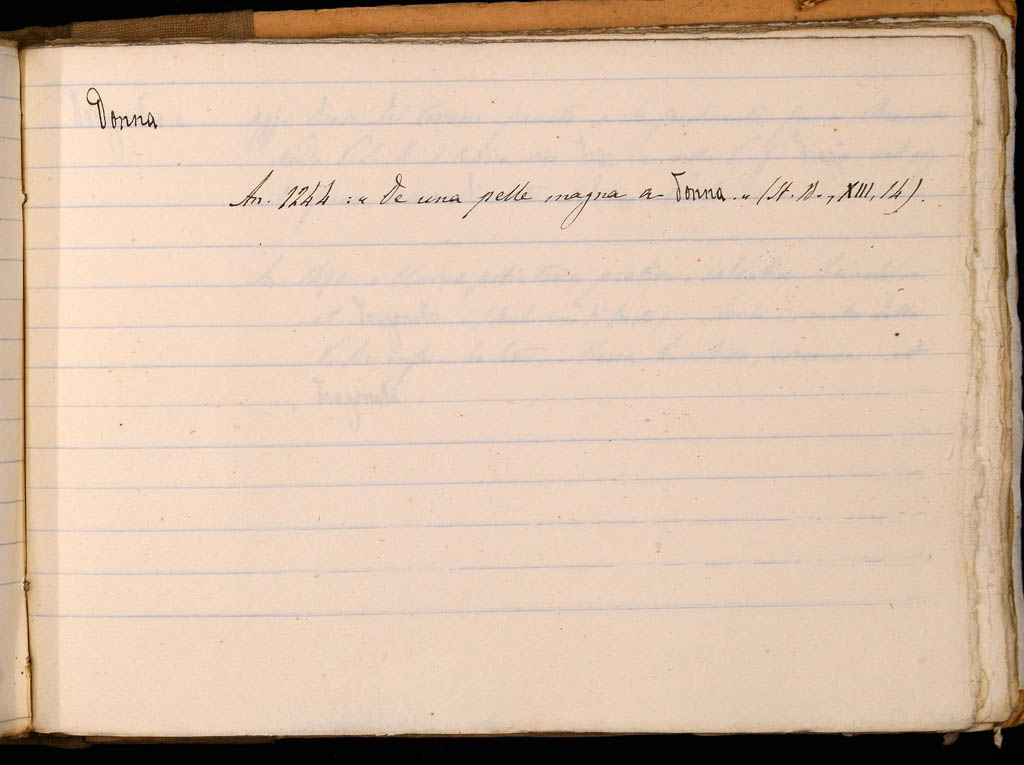 Donna
An. 1244 : " De una pelle magna a donna . " (A. D., XIII, 14).